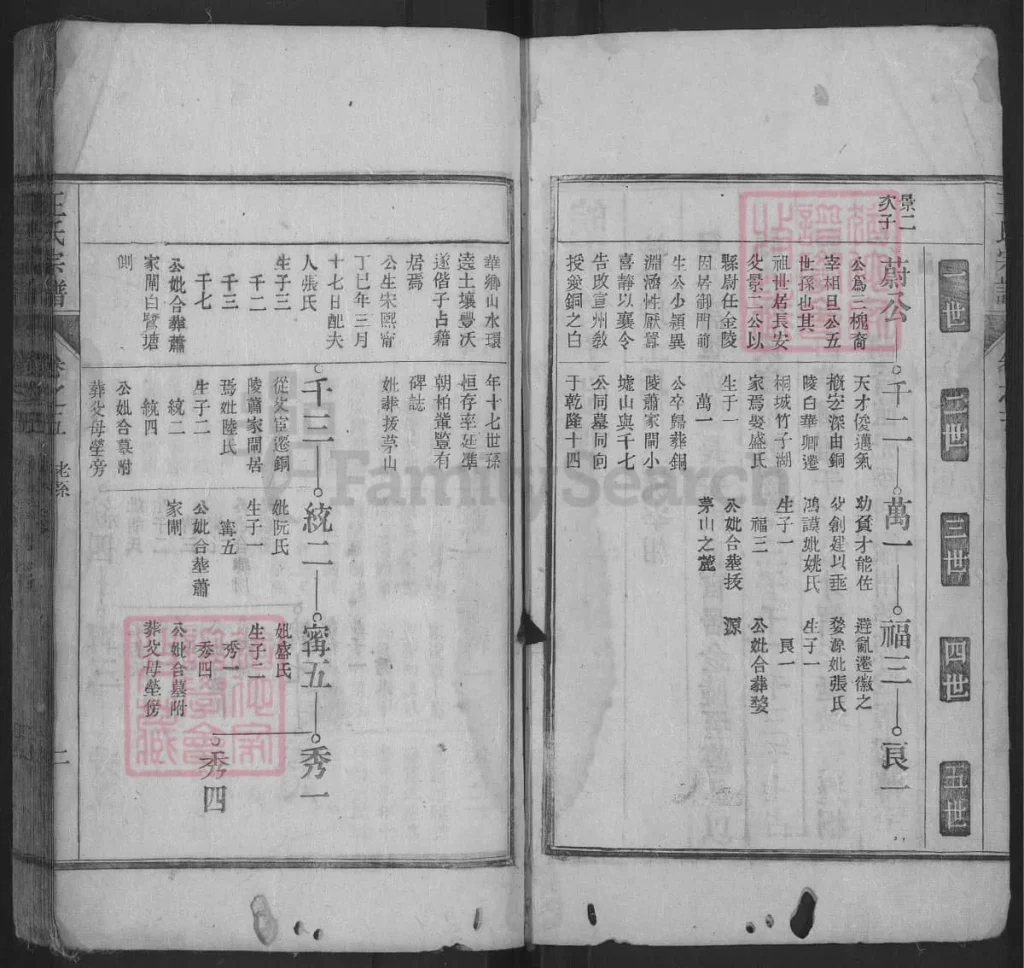 一世
二世
三世
四世
五世
景二
次子
蔚公
千二
萬一
福三
良一
公爲三槐裔
宰相旦公五
世孫也其
祖世居長安
父景二公以
縣尉任金陵
因居御門前
生公少穎異
淵性厭囂
喜靜以襄令
告宣州教
授愛銅之白
天才俊邁氣
概宏深由銅
陵白華鄉遷
桐城竹子湖
家焉娶盛氏
生子一
萬一
公卒歸葬銅
陵蕭家閘小
墟山與千七
公同墓同向
于乾隆十四
幼貧才能佐
父創建以垂
鴻謨妣姚氏
生子一
福三
公妣合葬拔
茅山之麓
避亂遷徽之
婺源妣張氏
生子一
良一
公妣合葬婺
源
華鄉山水環
遶土壤豐沃
遂偕子占籍
居焉
公生宋熙甯
丁巳年三月
十七日配夫
人張氏
生子三
千二
千三
千七
公妣合葬蕭
家閘白鷺塘
側
年十七世孫
恒存率廷準
朝柏黉覽有
碑誌
妣葬拔茅山
千三
統二
甯五
秀一
秀四
從父宦遷銅
陵蕭家閘居
焉妣陸氏
生子二
統二
統四
公妣合墓附
葬父母塋旁
妣阮氏
生子一
甯五
公妣合葬蕭
家閘
妣盛氏
生子二
秀一
秀四
公妣合墓附
葬父母塋傍
王氏宗譜
卷之五
老系
二
FamilySearch